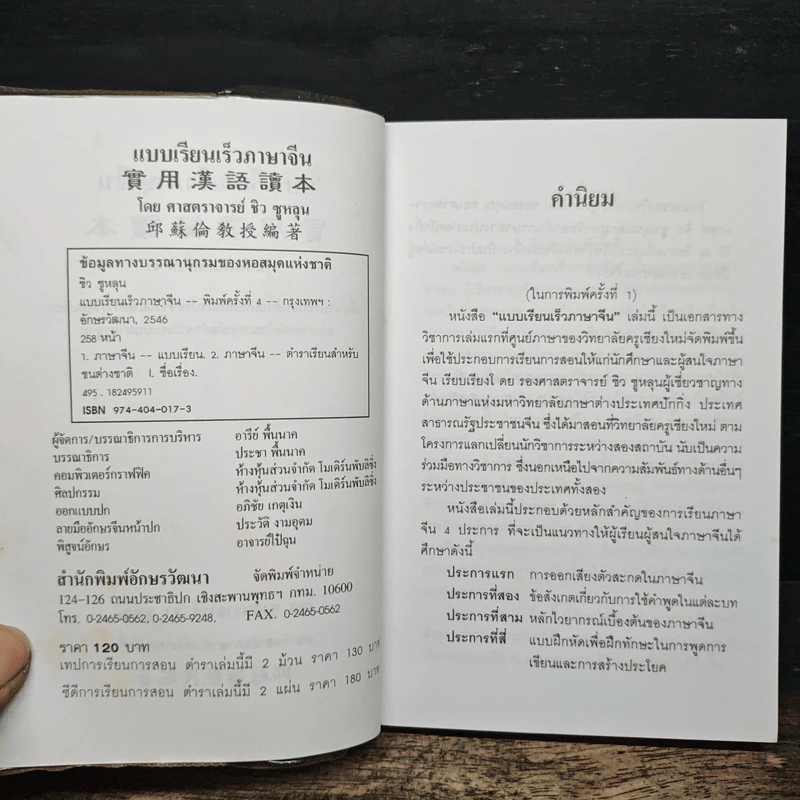 แบบเรียนเร็วภาษาจีน
實用漢語讀本
โดย ศาสตราจารย์ ชิว ซูหลุน
邱蘇倫教授編著
ข้อมูลทางบรรณานุกรมของหอสมุดแห่งชาติ
ชิว ซูหลุน
แบบเรียนเร็วภาษาจีน -- พิมพ์ครั้งที่ 4 -- กรุงเทพฯ :
อักษรวัฒนา, 2546
258 หน้า
1. ภาษาจีน -- แบบเรียน. 2. ภาษาจีน -- ตำราเรียนสำหรับ
ชนต่างชาติ I. ชื่อเรื่อง.
495 . 182495911
ISBN 974-404-017-3
ผู้จัดการ/บรรณาธิการการบริหาร อารีย์ พื้นนาค
บรรณาธิการ ประชา พื้นนาค
คอมพิวเตอร์กราฟฟิค ห้างหุ้นส่วนจำกัด โมเดิร์นพับลิชิ่ง
ศิลปกรรม ห้างหุ้นส่วนจำกัด โมเดิร์นพับลิชิ่ง
ออกแบบปก อภิชัย เกตุเงิน
ลายมืออักษรจีนหน้าปก ประวัติ งามอุดม
พิสูจน์อักษร อาจารย์ไป๋ฉุน
สำนักพิมพ์อักษรวัฒนา จัดพิมพ์จำหน่าย
124-126 ถนนประชาธิปก เชิงสะพานพุทธฯ กทม. 10600
โทร. 0-2465-0562, 0-2465-9248, FAX. 0-2465-0562
ราคา 120 บาท
เทปการเรียนการสอน ตำราเล่มนี้มี 2 ม้วน ราคา 130 บาท
ซีดีการเรียนการสอน ตำราเล่มนี้มี 2 แผ่น ราคา 180 บาท
คำนิยม
(ในการพิมพ์ครั้งที่ 1)
หนังสือ "แบบเรียนเร็วภาษาจีน" เล่มนี้ เป็นเอกสารทาง
วิชาการเล่มแรกที่ศูนย์ภาษาของวิทยาลัยครูเชียงใหม่จัดพิมพ์ขึ้น
เพื่อใช้ประกอบการเรียนการสอนให้แก่นักศึกษาและผู้สนใจภาษา
จีน เรียบเรียงโ ดย รองศาสตราจารย์ ชิว ซูหลุนผู้เชี่ยวชาญทาง
ด้านภาษาแห่งมหาวิทยาลัยภาษาต่างประเทศปักกิ่ง ประเทศ
สาธารณรัฐประชาชนจีน ซึ่งได้มาสอนที่วิทยาลัยครูเชียงใหม่ ตาม
โครงการแลกเปลี่ยนนักวิชาการระหว่างสองสถาบัน นับเป็นความ
ร่วมมือทางวิชาการ ซึ่งนอกเหนือไปจากความสัมพันธ์ทางด้านอื่นๆ
ระหว่างประชาชนของประเทศทั้งสอง
หนังสือเล่มนี้ประกอบด้วยหลักสำคัญของการเรียนภาษา
จีน 4 ประการ ที่จะเป็นแนวทางให้ผู้เรียนผู้สนใจภาษาจีนได้
ศึกษาดังนี้
ประการแรก การออกเสียงตัวสะกดในภาษาจีน
ประการที่สอง ข้อสังเกตเกี่ยวกับการใช้คำพูดในแต่ละบท
ประการที่สาม หลักไวยากรณ์เบื้องต้นของภาษาจีน
ประการที่สี่ แบบฝึกหัดเพื่อฝึกทักษะในการพูดการ
เขียนและการสร้างประโยค